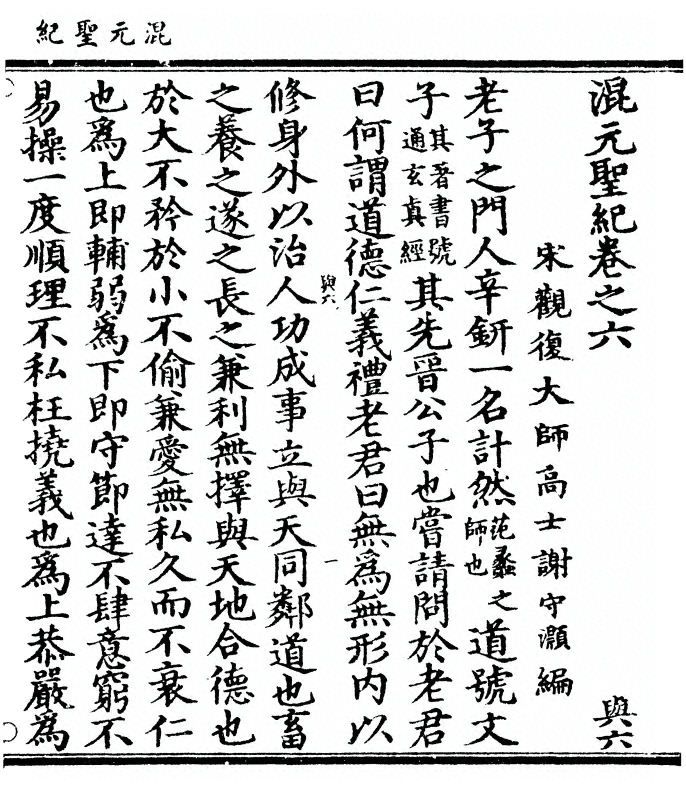 混元聖紀
混元聖紀卷之六 與六
宋觀復大師高士謝守灝編
老子之門人辛銒一名計然范蠡之師也道號文
子其著書號通玄真經其先晉公子也嘗請問於老君
曰何謂道德仁義禮老君曰無爲無形內以
與六 一
修身外以治人功成事立與天同鄰道也畜
之養之遂之長之兼利無擇與天地合德也
於大不矜於小不偷兼愛無私久而不衰仁
也爲上即輔弱爲下即守節達不肆意窮不
易操一度順理不私枉撓義也爲上恭嚴爲